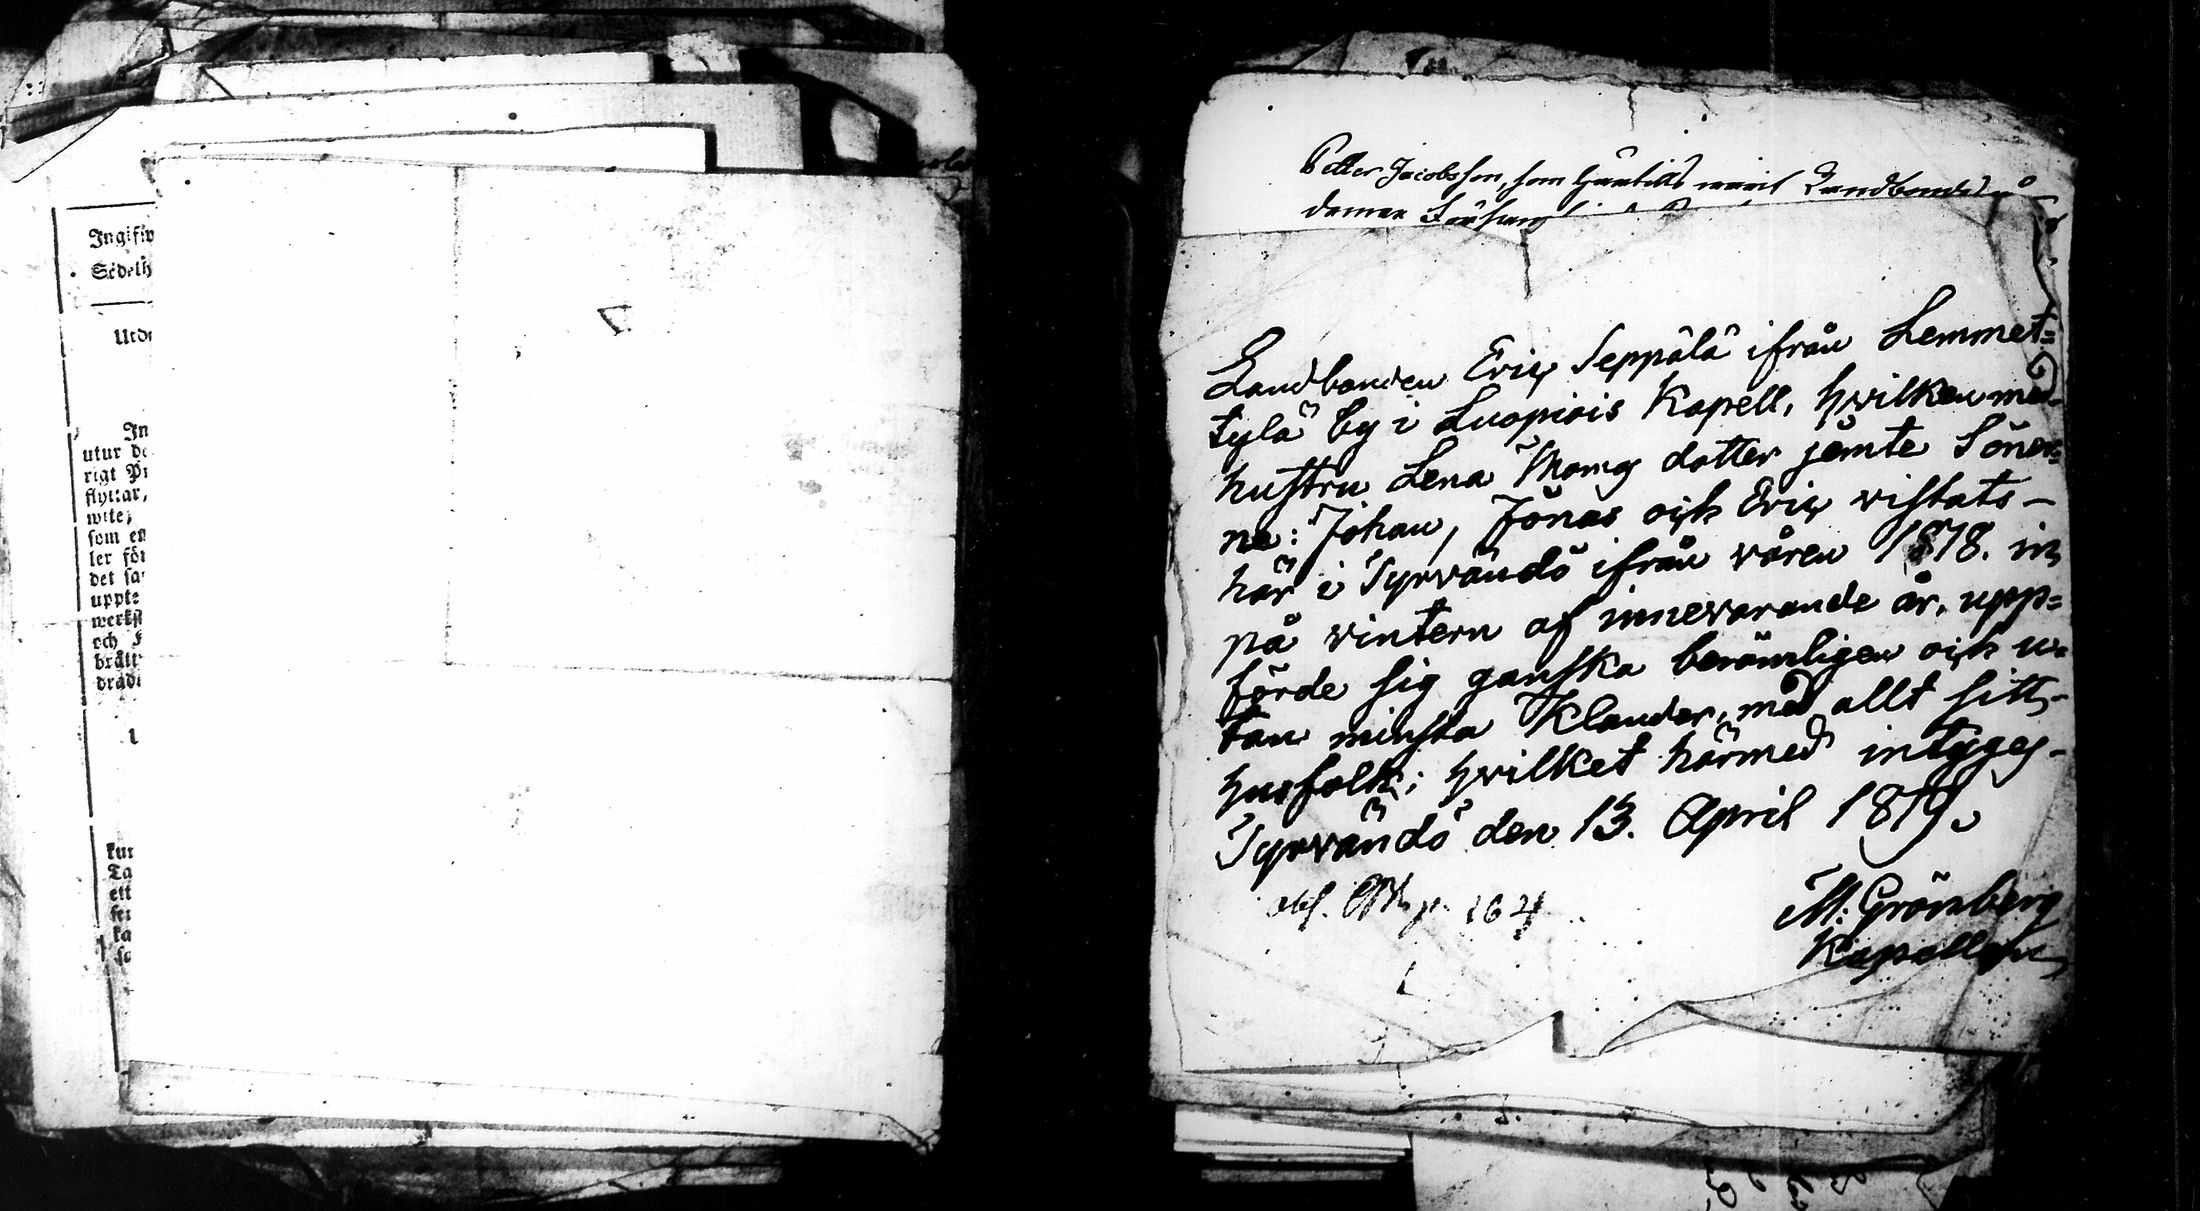 Ingifw
Sedelh
Unde
In
utur de
rigt Pr
flyttar,
wite;
som en
ler för
det sa
uppte
werkst
och F
brått
dradi
kun
Ta
ett
fer
ka
so
Petter Jacobsson, som härtills warit Landbonde på
denna
Landbonden Eric Seppälä ifrån Lemmet=
tylä by i Luopiois Kapell, hvilken med
hustru Lena Thomas dotter jemte Söner=
na: Johan, Jonas och Eric vistats –
här i Tyrvändö ifrån våren 1818. in
på vintern af innevarande år, upp=
förde sig ganska berömligen och u=
tan minsta Klander, med allt sitt –
husfolk; hvilket härmed intyges –
Tyrvändö den 13. April 1819.
p. 164
M: Grönberg
Kapellan